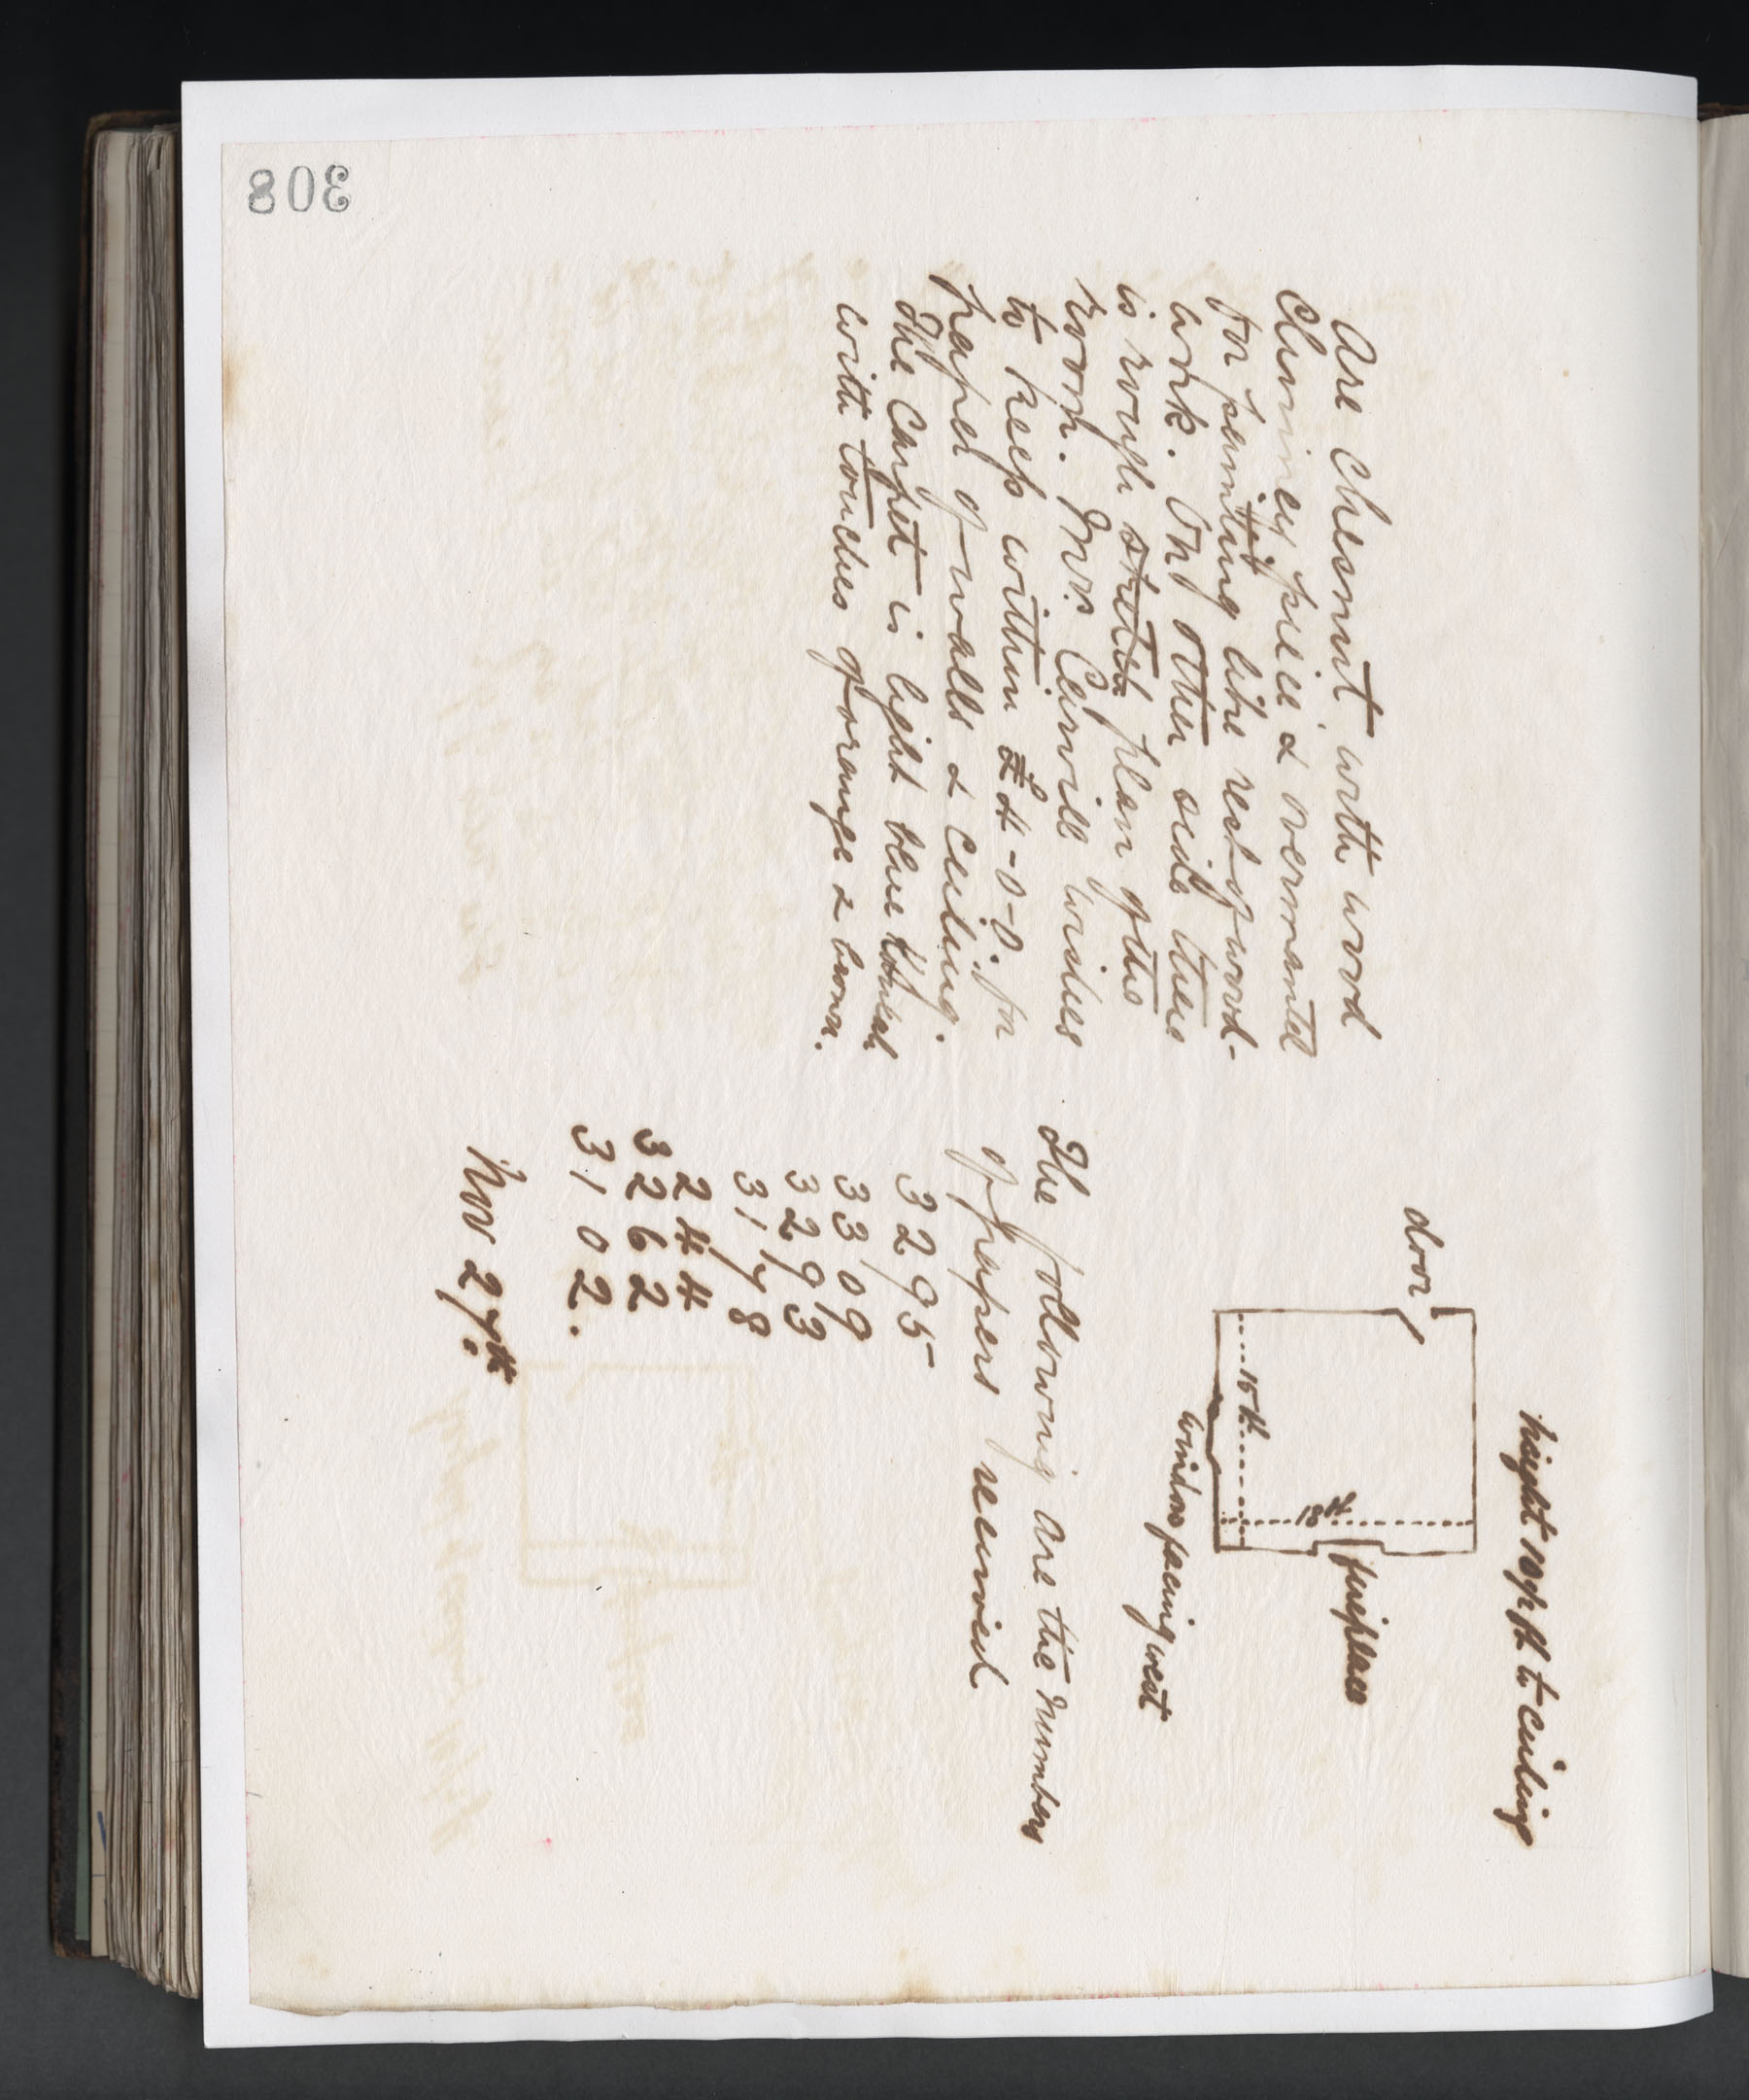 308
are chesnut with wood
Chimney piece & overmantel
for painting like rest of wood-
work. On other side there
is rough sketch plan of the
room. Mrs. Carvill wishes
to keep within £4-0-0. for
paper of walls & ceiling.
The Carpet is light blue
with touches of orange & brown.
height 10 ft to ceiling
door
fireplace
18 ft
15 ft
window facing west
The following are the numbers
of papers received
3295
3309
3293
3178
244
3262
3102.
Nov 27th.